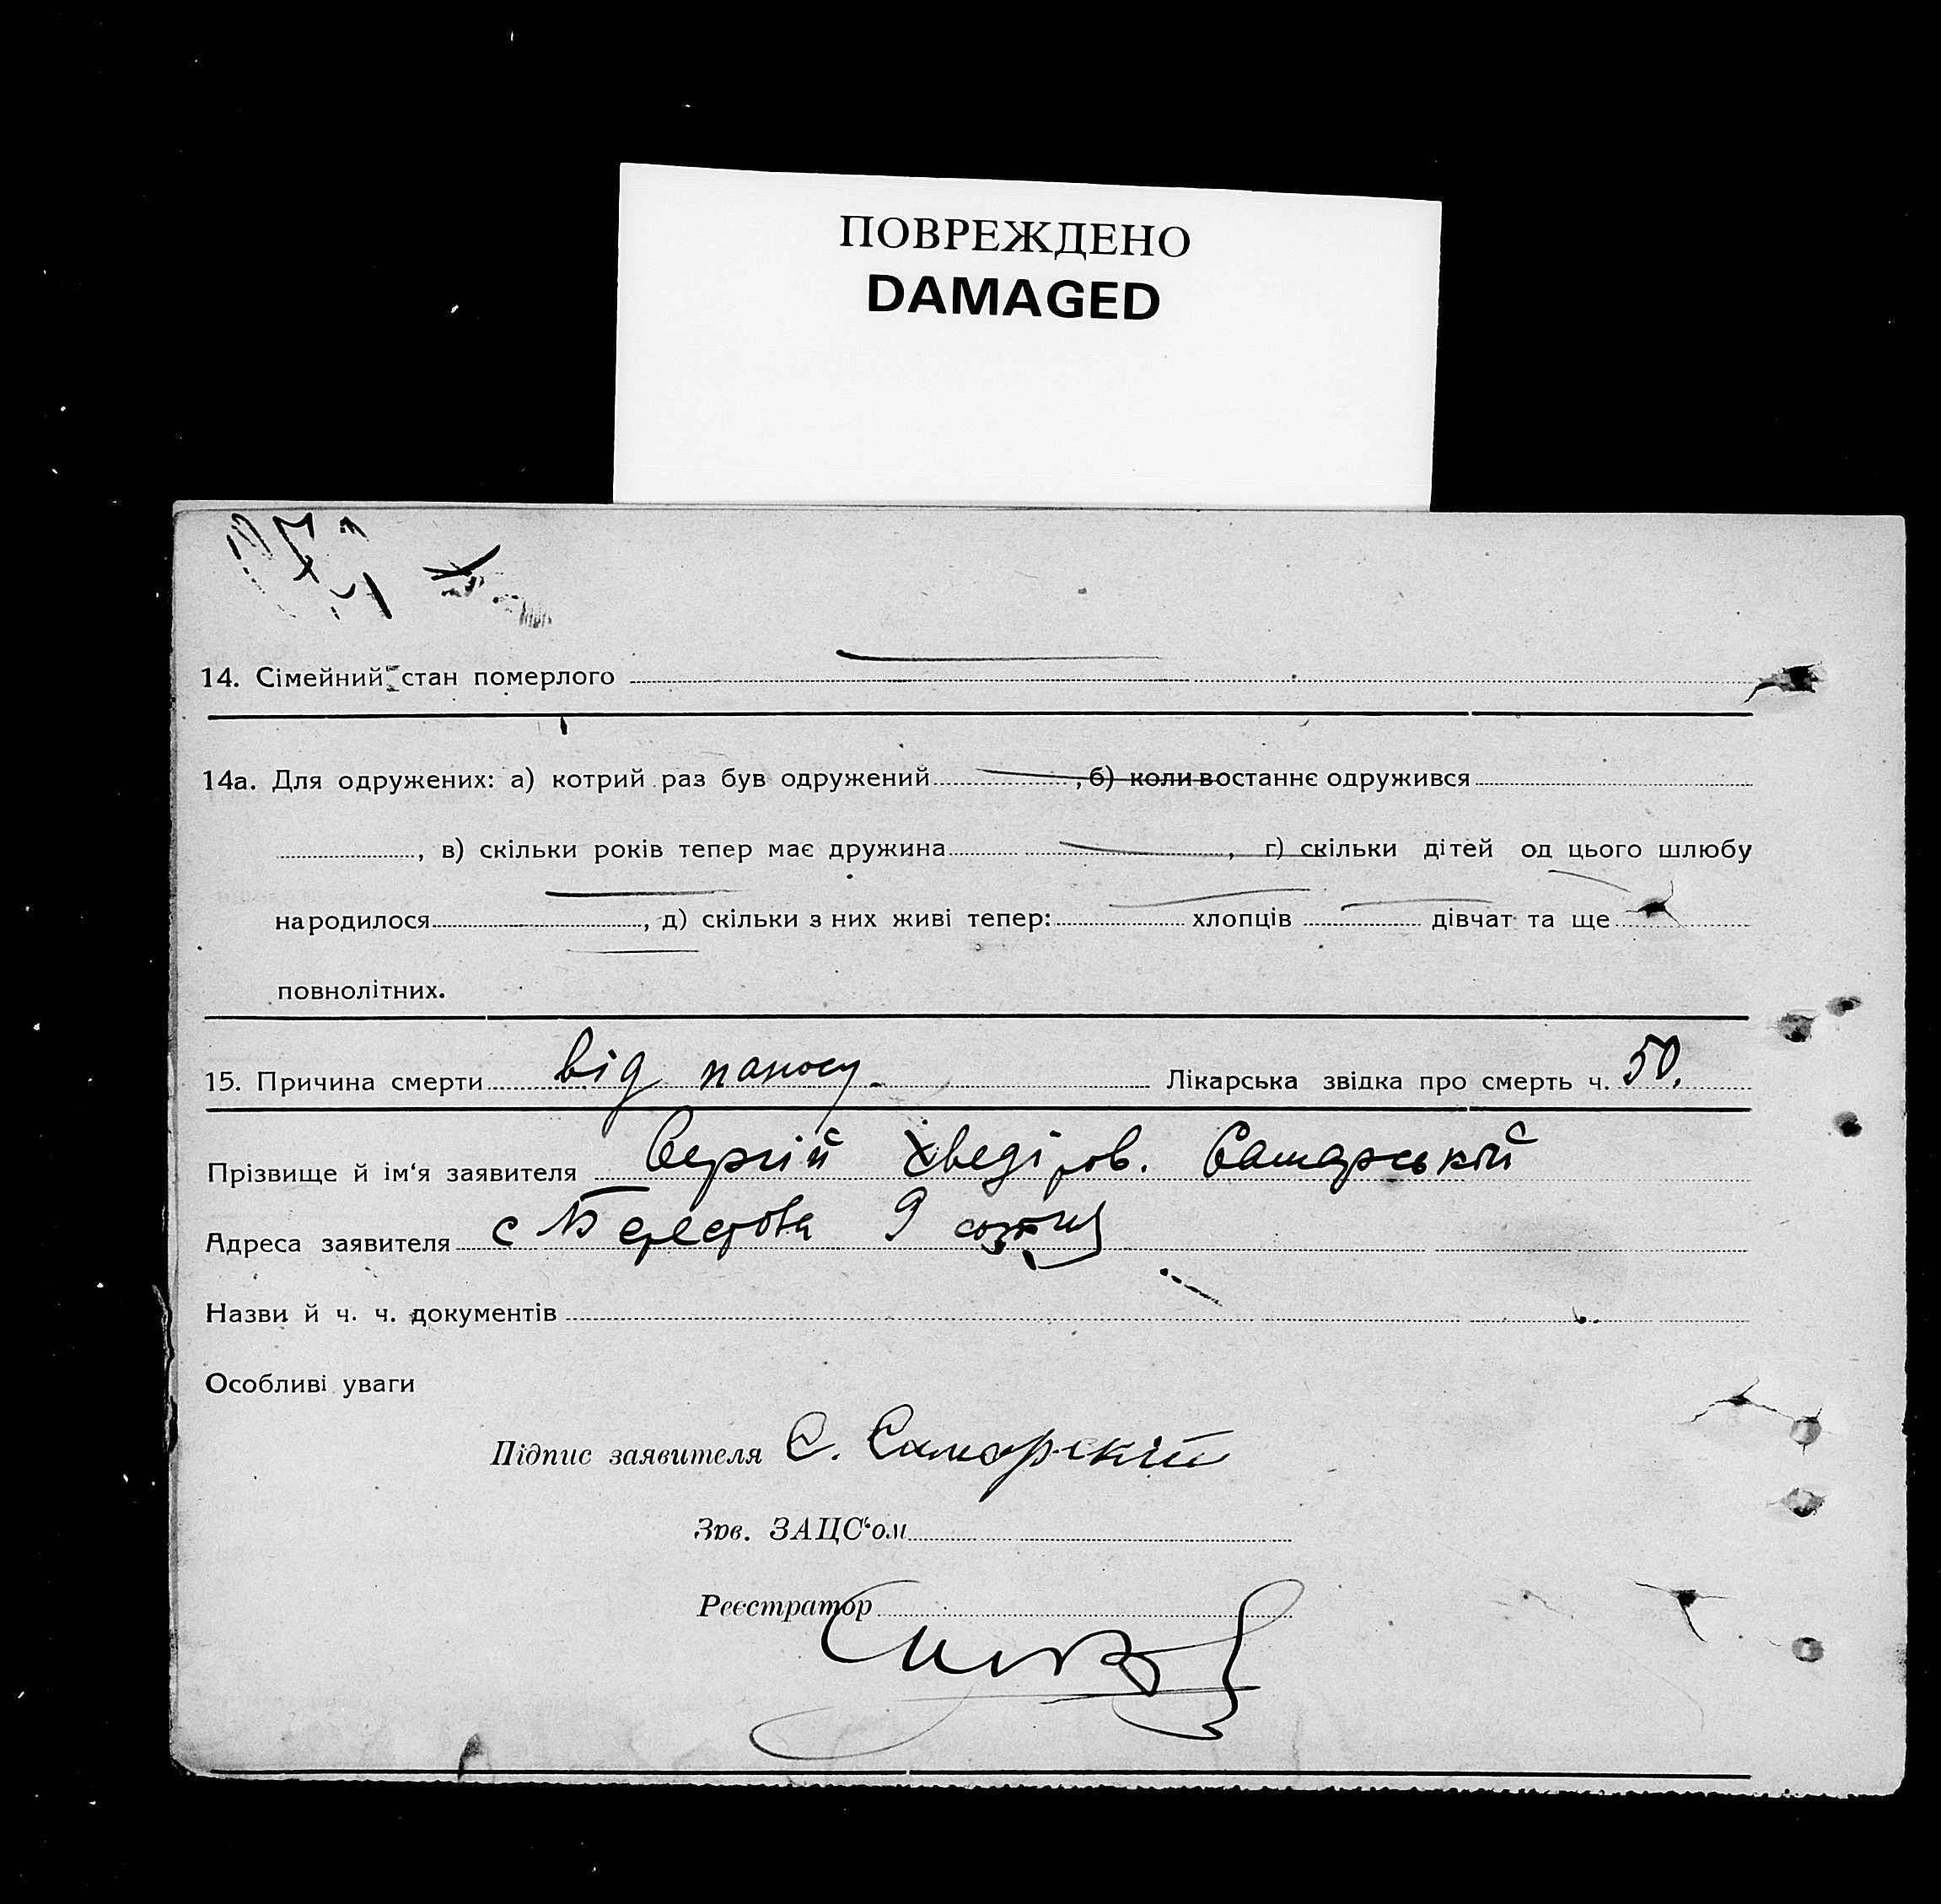 ПОВРЕЖДЕНО
DAMAGED
14. Сімейний стан померлого
14а. Для одружених: а) котрий раз був одружений , б) коли востаннє одружився
, в) скільки років тепер має дружина , г) скільки дітей од цього шлюбу
народилося , д) скільки з них живі тепер: хлопців дівчат та ще
повнолітних.
15. Причина смерти від поносу. Лікарська звідка про смерть ч. 50.
Прізвище й ім'я заявителя Сергій Хведіров. Самарський
Адреса заявителя с Берестова 9 сотня
Назви й ч. ч. документів
Особливі уваги
Підпис заявителя С. Самарський
Зав. ЗАЦС'ом
Реєстратор